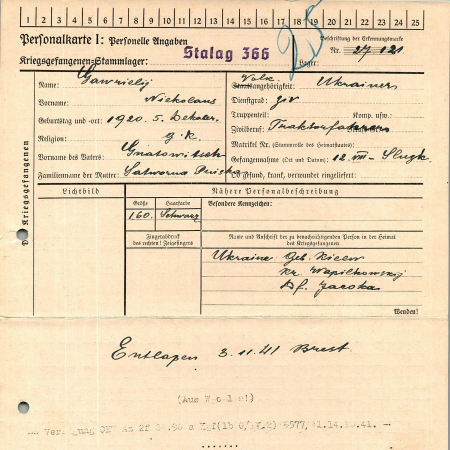 1 2 3 4 5 6 7 8 9 10 11 12 13 14 15 16 17 18 19 20 21 22 23 24 25
Personalkarte I: Personelle Angaben
Beschriftung der Erkennungsmarke
Kriegsgefangenen-Stammlager: Stalag 366
Lager:
Nr. 27121
25
Des Kriegsgefangenen
Name: Gawrielij
Vorname: Nickolaus
Geburtstag und -ort: 1920. 5.
Religion: g.k.
Vorname des Vaters:
Familienname der Mutter:
Volk
Staatsangehörigkeit: Ukrainer
Dienstgrad:
Truppenteil: Komp. usw.:
Zivilberuf:
Matrikel Nr. (Stammrolle des Heimatstaates):
Gefangennahme (Ort und Datum): 12. VII - Sluzk
Ob gesund, krank, verwundet eingeliefert:
Lichtbild
Nähere Personalbeschreibung
Größe Haarfarbe
1.60. Schwarz
Besondere Kennzeichen:
Fingerabdruck
des rechten! Zeigefingers
Name und Anschrift der zu benachrichtigenden Person in der Heimat
des Kriegsgefangenen
Ukraine: Geb. Kiew
Kr.
Df. Jaroka
Wenden!
Entlassen 3.11.41 Brest.